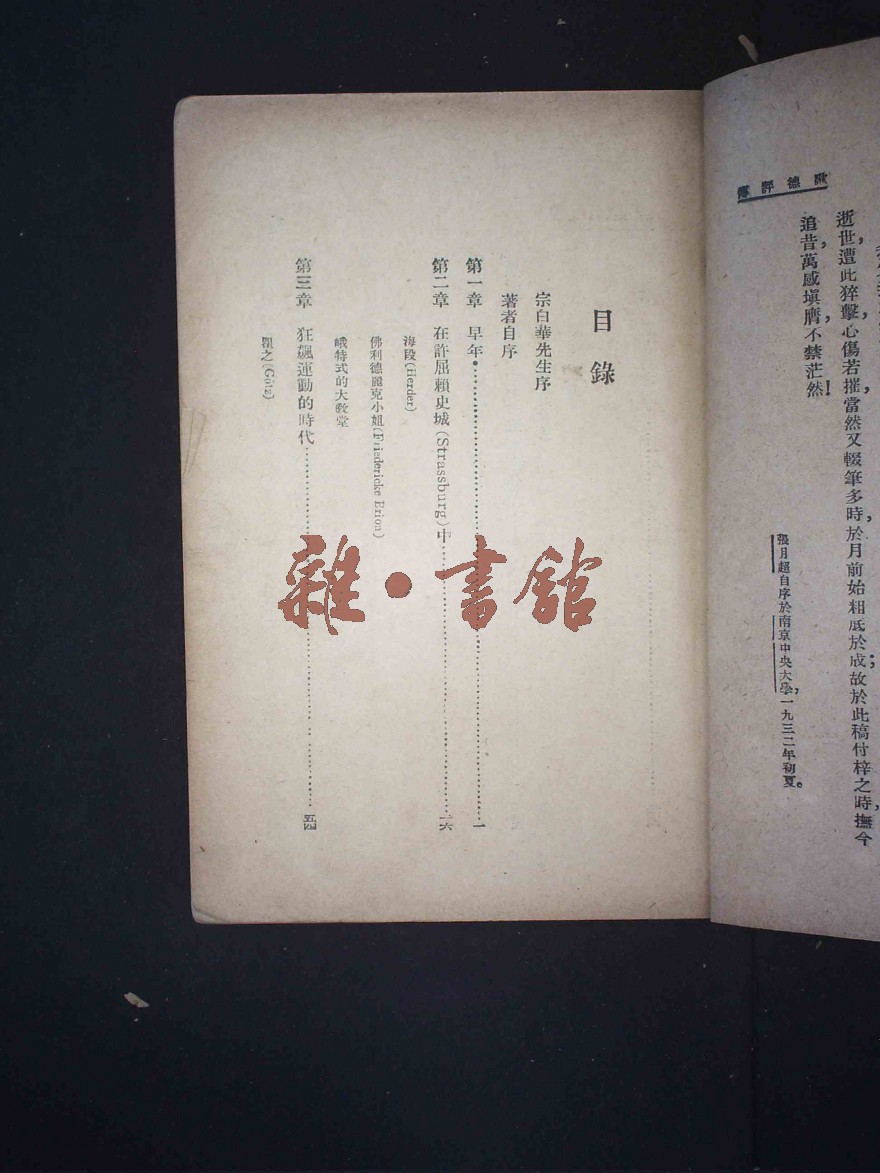 歌德評傳
逝世，遭此猝擊，心傷若摧，當然又輟筆多時，於月前始粗底於成；故於此稿付梓之時，撫今
追昔，萬感塡膺，不禁茫然！
張月超自序於南京中央大學，一九三二年初夏。
目錄
宗白華先生序
著者自序
第一章 早年 一
第二章 在許屈賴史城(Strassburg)中 二六
海段(Herder)
佛利德麗克小姐(Friedericke Brion)
峨特式的大教堂
第三章 狂飆運動的時代 五四
瞿之(Götz)
雜·書館